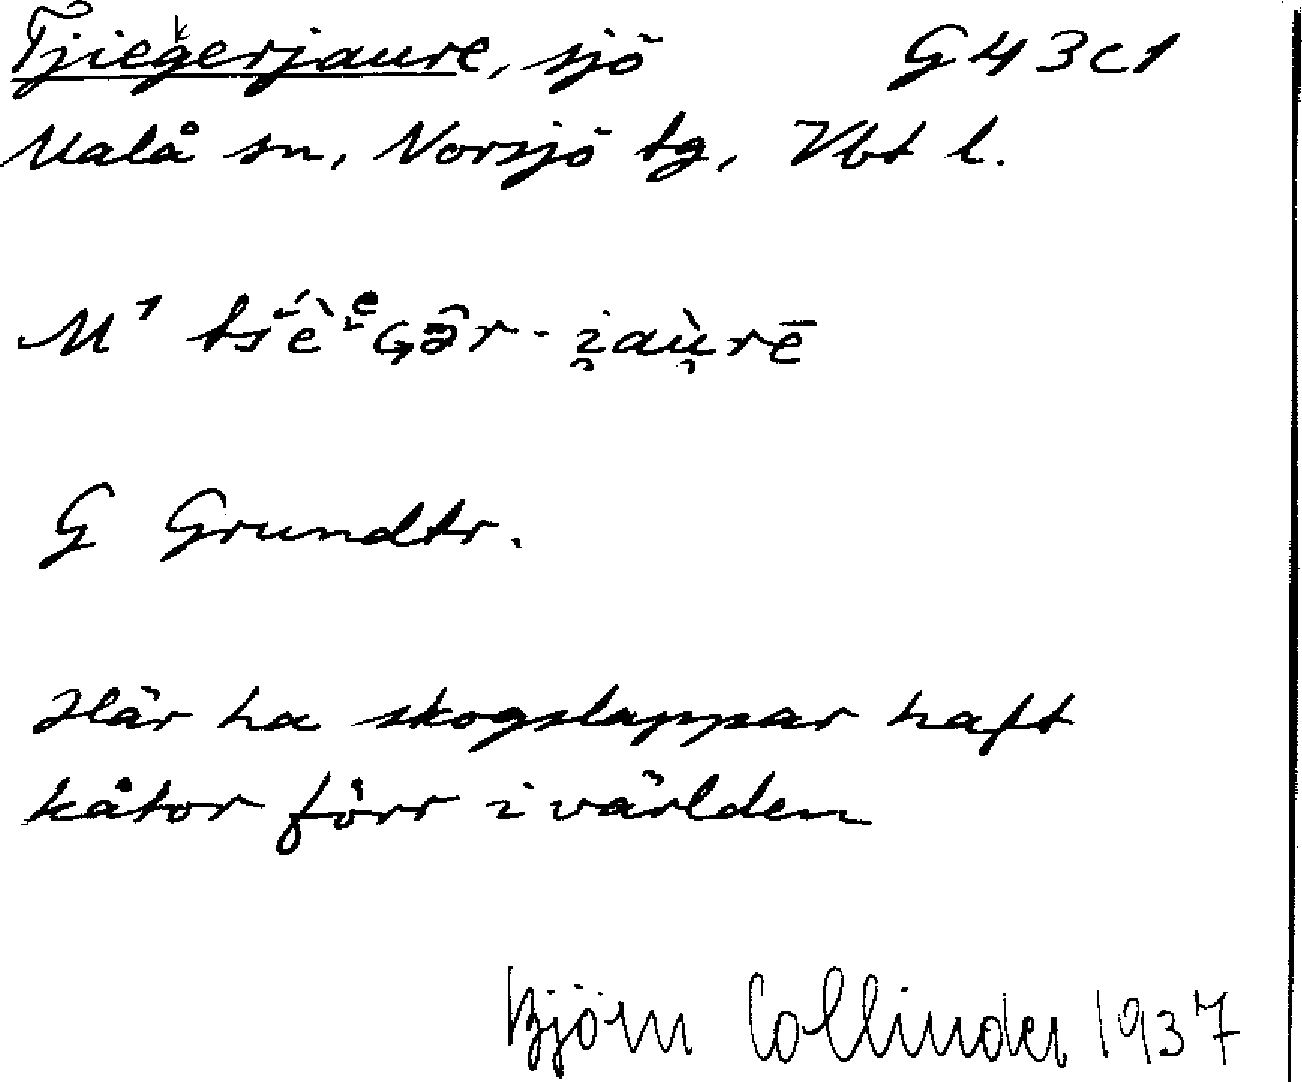 Tjiegerjaure, sjö G43c1
Malå sn, Norsjö tg, Vbt l.
M¹
G Grundtr.
Här ha skogslappar haft
kåtor förr i världen
Björn Collinder 1937